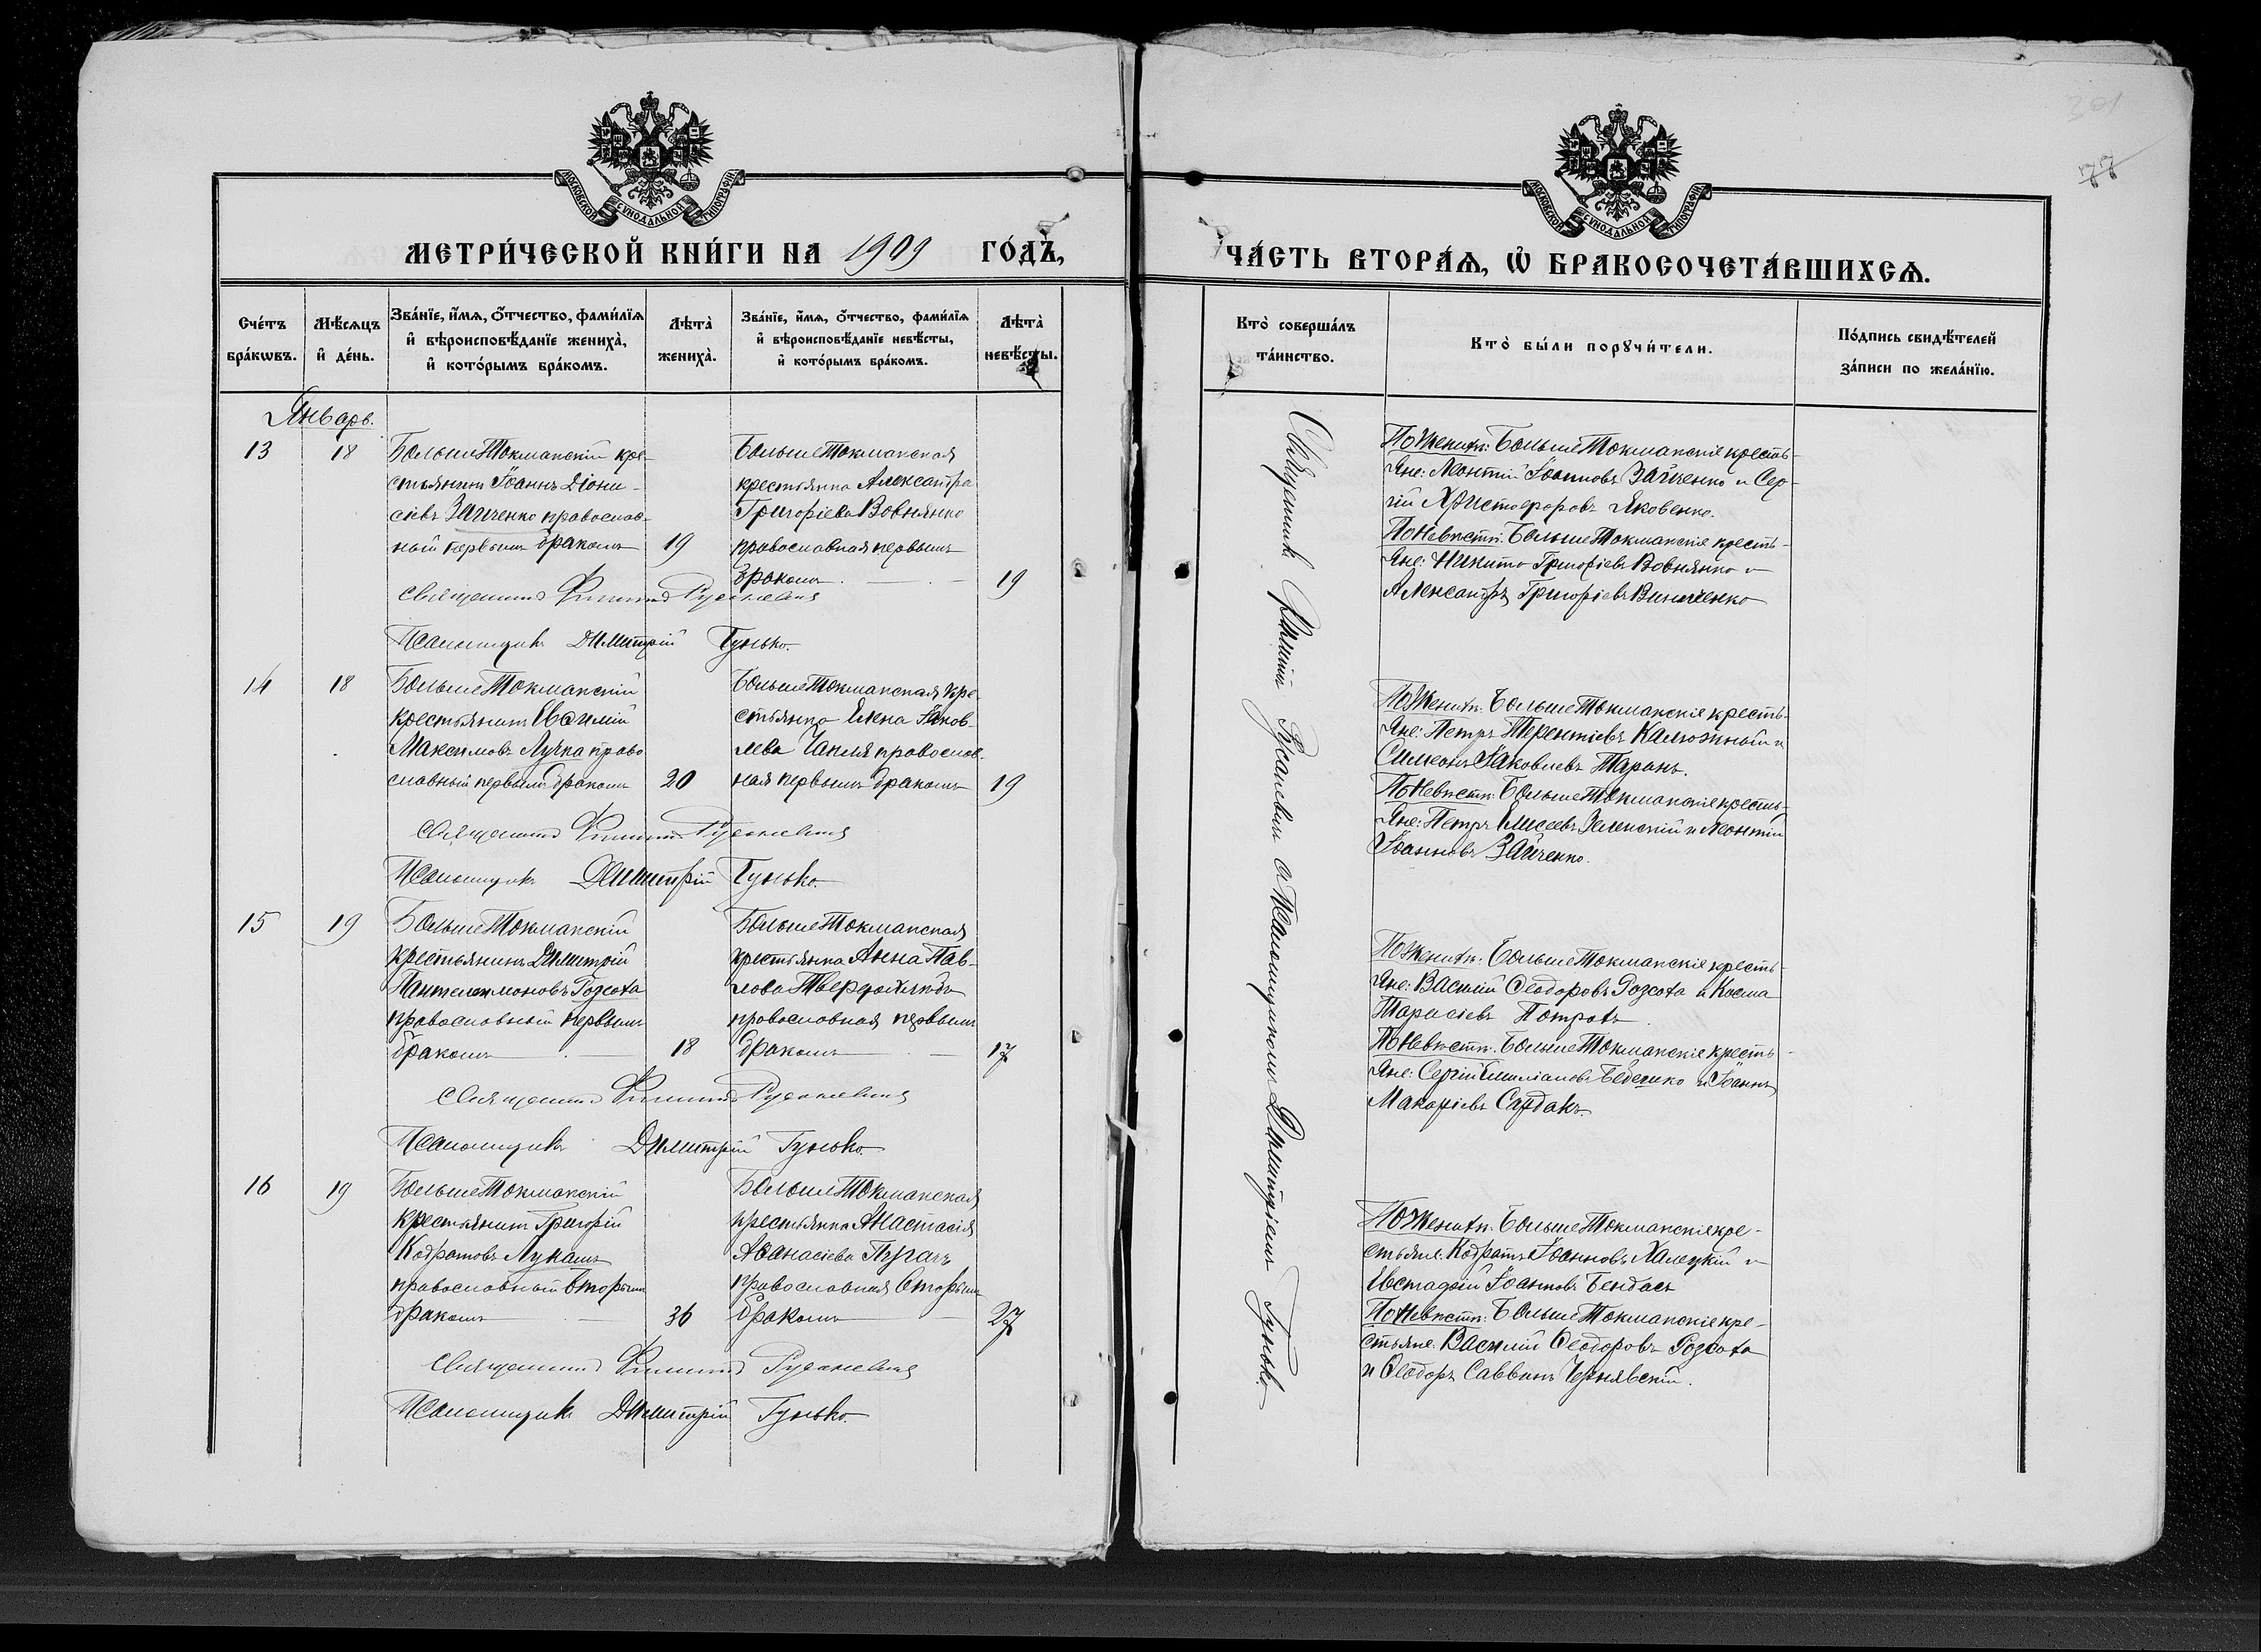 301
77
МОСКОВСКОЙ СѴНОДАЛЬНОЙ ТИПОГРАФІИ
МЕТРИ́ЧЕСКОЙ КНИ́ГИ НА 1909 ГО́ДЪ,
Сче́тъ бра́кωвъ.
Мѣ́сѧцъ и҆ де́нь.
Зва́нїе, и҆́мѧ, ѻ҆́тчество, фами́лїѧ и҆ вѣроисповѣ́данїе жениха̀, и҆ кото́рымъ бра́комъ.
Лѣта̀ жениха̀.
Зва́нїе, и҆́мѧ, ѻ҆́тчество, фами́лїѧ и҆ вѣроисповѣ́данїе невѣ́сты, и҆ кото́рымъ бра́комъ.
Лѣта̀ невѣ́сты.
Январь.
13
18
Больше Токмакскій кре-
стьянинъ Іоаннъ Діони-
сіевъ Зайченко православ-
ный первымъ бракомъ
19
Больше Токмакская
крестьянка Александра
Григоріева Вовнянко
православная первымъ
бракомъ
19
Священникъ Филиппъ
Псаломщикъ Димитрій Гунько.
14
18
Больше Токмакскій
крестьянинъ Евѳимій
Максимовъ Лучка право
славный первымъ бракомъ
20
Больше Токмакская кре-
стьянка Елена Іаков-
лева Чапля православ-
ная первымъ бракомъ
19
Священникъ Филиппъ
Псаломщикъ Димитрій Гунько.
15
19
Больше Токмакскій
крестьянинъ Димитрій
Пантелеимоновъ Розсоха
православный первымъ
бракомъ
18
Больше Токмакская
крестьянка Анна Пав-
лова Твердохлѣбъ
православная первымъ
бракомъ
17
Священникъ Филиппъ
Псаломщикъ Димитрій Гунько.
16
19
Больше Токмакскій
крестьянинъ Григорій
Кодратовъ Лукашъ
православный вторымъ
бракомъ
36
Больше Токмакская
крестьянка Анастасія
Аѳанасіева Пугачъ
православная вторымъ
бракомъ
27
Священникъ Филиппъ
Псаломщикъ Димитрій Гунько.
МОСКОВСКОЙ СѴНОДАЛЬНОЙ ТИПОГРАФІИ
ЧА́СТЬ ВТОРА́Ѧ, Ѡ҆ БРАКОСОЧЕТА́ВШИХСѦ.
Кто̀ соверша́лъ та́инство.
Кто̀ бы́ли порꙋчи́тели.
По́дпись свидѣ́телей за́писи по жела́нїю.
Священникъ Филиппъ съ Псаломщикомъ Димитріемъ Гунько.
По женихѣ: Больше Токмакскіе кресть-
яне: Леонтій Іоанновъ Зайченко и Сер-
гій Христофоровъ Яковенко.
По невѣстѣ: Больше Токмакскіе кресть-
яне: Никита Григоріевъ Вовнянко и
Александръ Григоріевъ Виниченко
По женихѣ: Больше Токмакскіе кресть-
яне: Петръ Терентіевъ Калюжный и
Симеонъ Іаковлевъ Таранъ.
По невѣстѣ: Больше Токмакскіе кресть-
яне: Петръ Елисеевъ Зеленскій и Леонтій
Іоанновъ Зайченко.
По женихѣ: Больше Токмакскіе кресть-
яне: Василій Ѳеодоровъ Розсоха и Косма
Тарасіевъ
По невѣстѣ: Больше Токмакскіе кресть-
яне: Сергій Емиліановъ и Іоаннъ
Макаріевъ
По женихѣ: Больше Токмакскіе кре-
стьяне: Кодратъ Іоанновъ Халецкій и
Евстафій Іоанновъ Бендасъ
По невѣстѣ: Больше Токмакскіе кре-
стьяне: Василій Ѳеодоровъ Розсоха
и Ѳеодоръ Саввинъ Чернявскій.